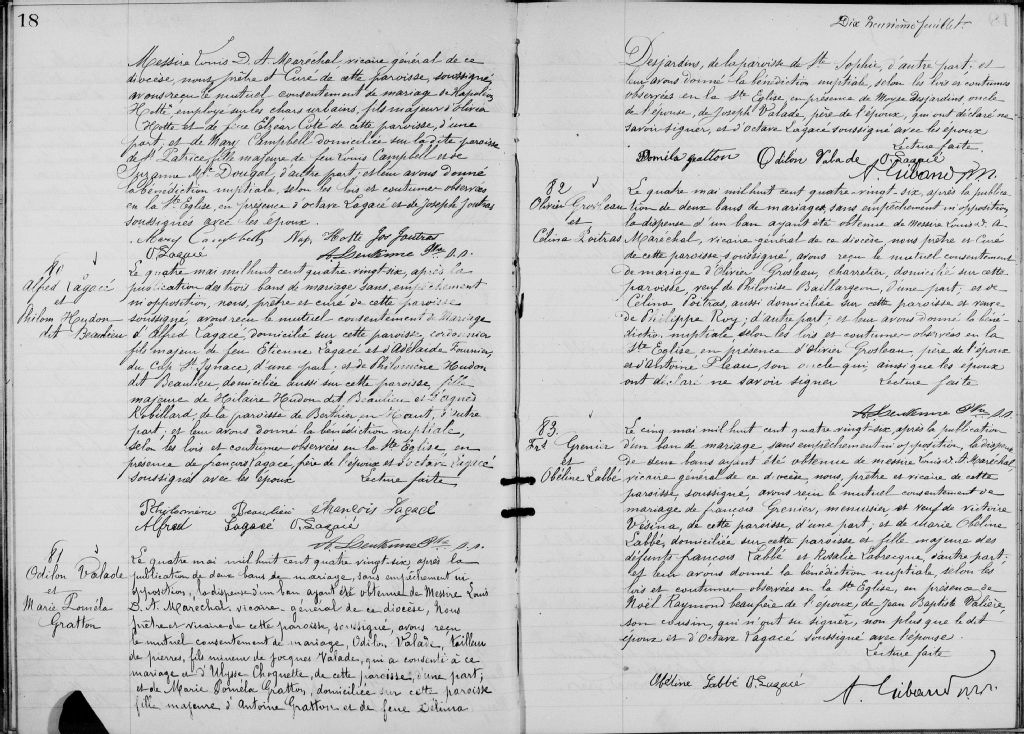 18
Messire Louis D. A. Maréchal vicaire général de ce
diocèse, nous, prêtre et Curé de cette paroisse, soussigné,
avons reçu le mutuel consentement de mariage de Napoléon
Hotte employé sur les chars urbains, fils majeur d'Olivier
Hotte et de feue Elzear Coté de cette paroisse, d'une
part, et de Mary Campbell domiciliée sur la dite paroisse
de St Patrice, fille majeure de feu Louis Campbell et de
Suzanne Mc Dougal, d'autre part; et leur avons donné
la bénédiction nuptiale, selon les lois et coutumes observées
en la Ste Eglise, en présence d'octave Lagacé et de Joseph Joutras
soussignés avec les époux.
Mary Campbell Nap. Hotte Jos Joutras
O Lagacé
80
Alfred Lagacé
et
Philom Hudon
dit Beaulieu
Le quatre mai mil huit cent quatre vingt-six, après la
publication des trois bans de mariage sans empêchement
ni opposition, nous, prêtre et curé de cette paroisse
soussigné, avons reçu le mutuel consentement de Mariage
d'Alfred Lagacé, domicilié sur cette paroisse, cordonnier
fils majeur de feu Etienne Lagacé et d'Adélaide Fournier,
du Cap St Ignace, d'une part; et de Philomène Hudon
dit Beaulieu, domiciliée aussi sur cette paroisse, fille
majeure de Hilaire Hudon dit Beaulieu et d'Agnès
Robillard, de la paroisse de Berthier en Haut, d'autre
part; et leur avons donné la bénédiction nuptiale,
selon les lois et coutumes observées en la Ste Eglise, en
présence de françois Lagacé, frère de l'époux et d'octave Lagacé
soussignés avec les époux Lecture faite
Phylomène Beaulieu François Lagacé
Alfred Lagacé O. Lagacé
81
Odilon Valade
et
Marie Poméla
Gratton
Le quatre mai mil huit cent quatre vingt-six, après la
publication de deux bans de mariage, sans empêchement ni
opposition, la dispense d'un ban ayant été obtenue de Messire Louis
D. A. Maréchal. vicaire-général de ce diocèse, Nous
prêtre et vicaire de cette paroisse, soussigné, avons reçu
le mutuel consentement de mariage, Odilon Valade, tailleur
de pierres, fils mineur de Jacques Valade, qui a consenti à ce
mariage et d'Ulysse Choquette, de cette paroisse, d'une part;
et de Marie Poméla Gratton, domiciliée sur cette paroisse
fille majeure d'Antoine Gratton et de feue Delima
Dix neuvième feuillet
Desjardins, de la paroisse de Ste Sophie, d'autre part; et
leur avons donné la bénédiction nuptiale, selon les lois et coutumes
observées en la Ste Eglise, en présence de Moyse Desjardins, oncle
de l'épouse, de Joseph Valade, père de l'époux, qui ont déclaré ne
savoir signer, et d'Octave Lagacé soussigné avec les époux
Lecture faite.
Poméla gratton Odilon Valade O Lagacé
82
Olivier Grosleau
et
Célina Poitras
Le quatre mai mil huit cent quatre-vingt-six, après la publica
tion de deux bans de mariages, sans empêchement ni opposition
la dispense d'un ban ayant été obtenue de Messire Louis D. A
Maréchal, vicaire-général de ce diocèse nous prêtre et Curé
de cette paroisse soussigné, avons reçu le mutuel consentement
de mariage d'Olivier Grosleau, charretier, domicilié sur cette
paroisse, veuf de Philonise Baillargeon, d'une part; et de
Célina Poitras, aussi domiciliée sur cette paroisse et veuve
de Philippe Roy, d'autre part; et leur avons donné la béné
diction nuptiale, selon les lois et coutumes observées en la
Ste Eglise en présence d'Olivier Grosleau, père de l'époux
et d'Antoine Pleau son oncle qui ainsi que les époux
ont déclaré ne savoir signer Lecture faite
83.
Frs Grenier
et
Obéline Labbé
Le cinq mai mil huit cent quatre vingt-six, après la publication
d'un ban de mariage, sans empêchement ni opposition, la dispense
de deux bans ayant été obtenue de messire Louis D. A. Maréchal
vicaire général de ce diocèse, nous, prêtre et vicaire de cette
paroisse, soussigné, avons reçu le mutuel consentement de
mariage de françois Grenier, menuisier et veuf de victoire
Vésina, de cette paroisse, d'une part; et de Marie Obéline
Labbé, domiciliée sur cette paroisse et fille majeure des
défunts françois Labbé et Rosalie Labrecque, d'autre part,
et leur avons donné la bénédiction nuptiale, selon les
lois et coutumes observées en la Ste Eglise, en présence de
Noël Raymond beaufrère de l'époux, de Jean Baptiste Valière
son cousin, qui n'ont su signer, non plus que le dit
époux et d'Octave Lagacé soussigné avec l'épouse.
Lecture faite
Obéline Labbé O. Lagacé